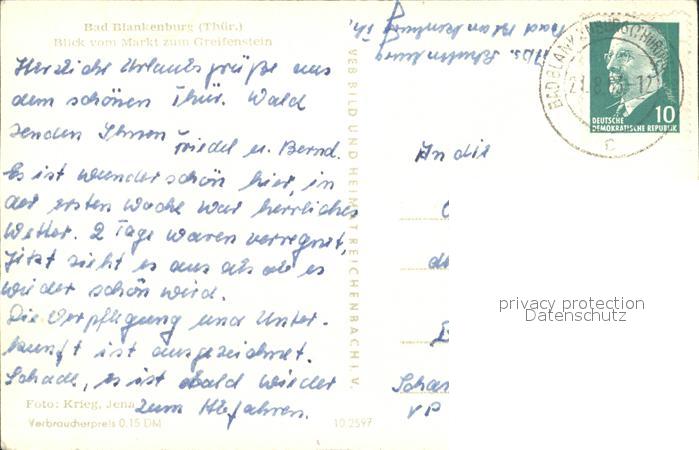 Bad Blankenburg (Thür.)
Blick vom Markt zum Greifenstein
Herzliche Urlaubsgrüße aus
dem schönen Thür. Wald
senden Ihnen
Friedel u. Bernd.
Es ist wunderschön hier, in
der ersten Woche war herrliches
Wetter. 2 Tage waren verregnet,
jetzt sieht es aus als ob es
wieder schön wird.
Die Verpflegung und Unter-
kunft ist ausgezeichnet.
Schade, es ist bald wieder
zum Abfahren.
Foto: Krieg, Jena
Verbraucherpreis 0,15 DM
10.2597
VEB BILD UND HEIMAT REICHENBACH I. V.
Abs.
Bad Blankenburg Th.
BAD BLANKENBURG
21.8.
-12
c
10
DEUTSCHE
DEMOKRATISCHE REPUBLIK
An die
VP
privacy protection
Datenschutz